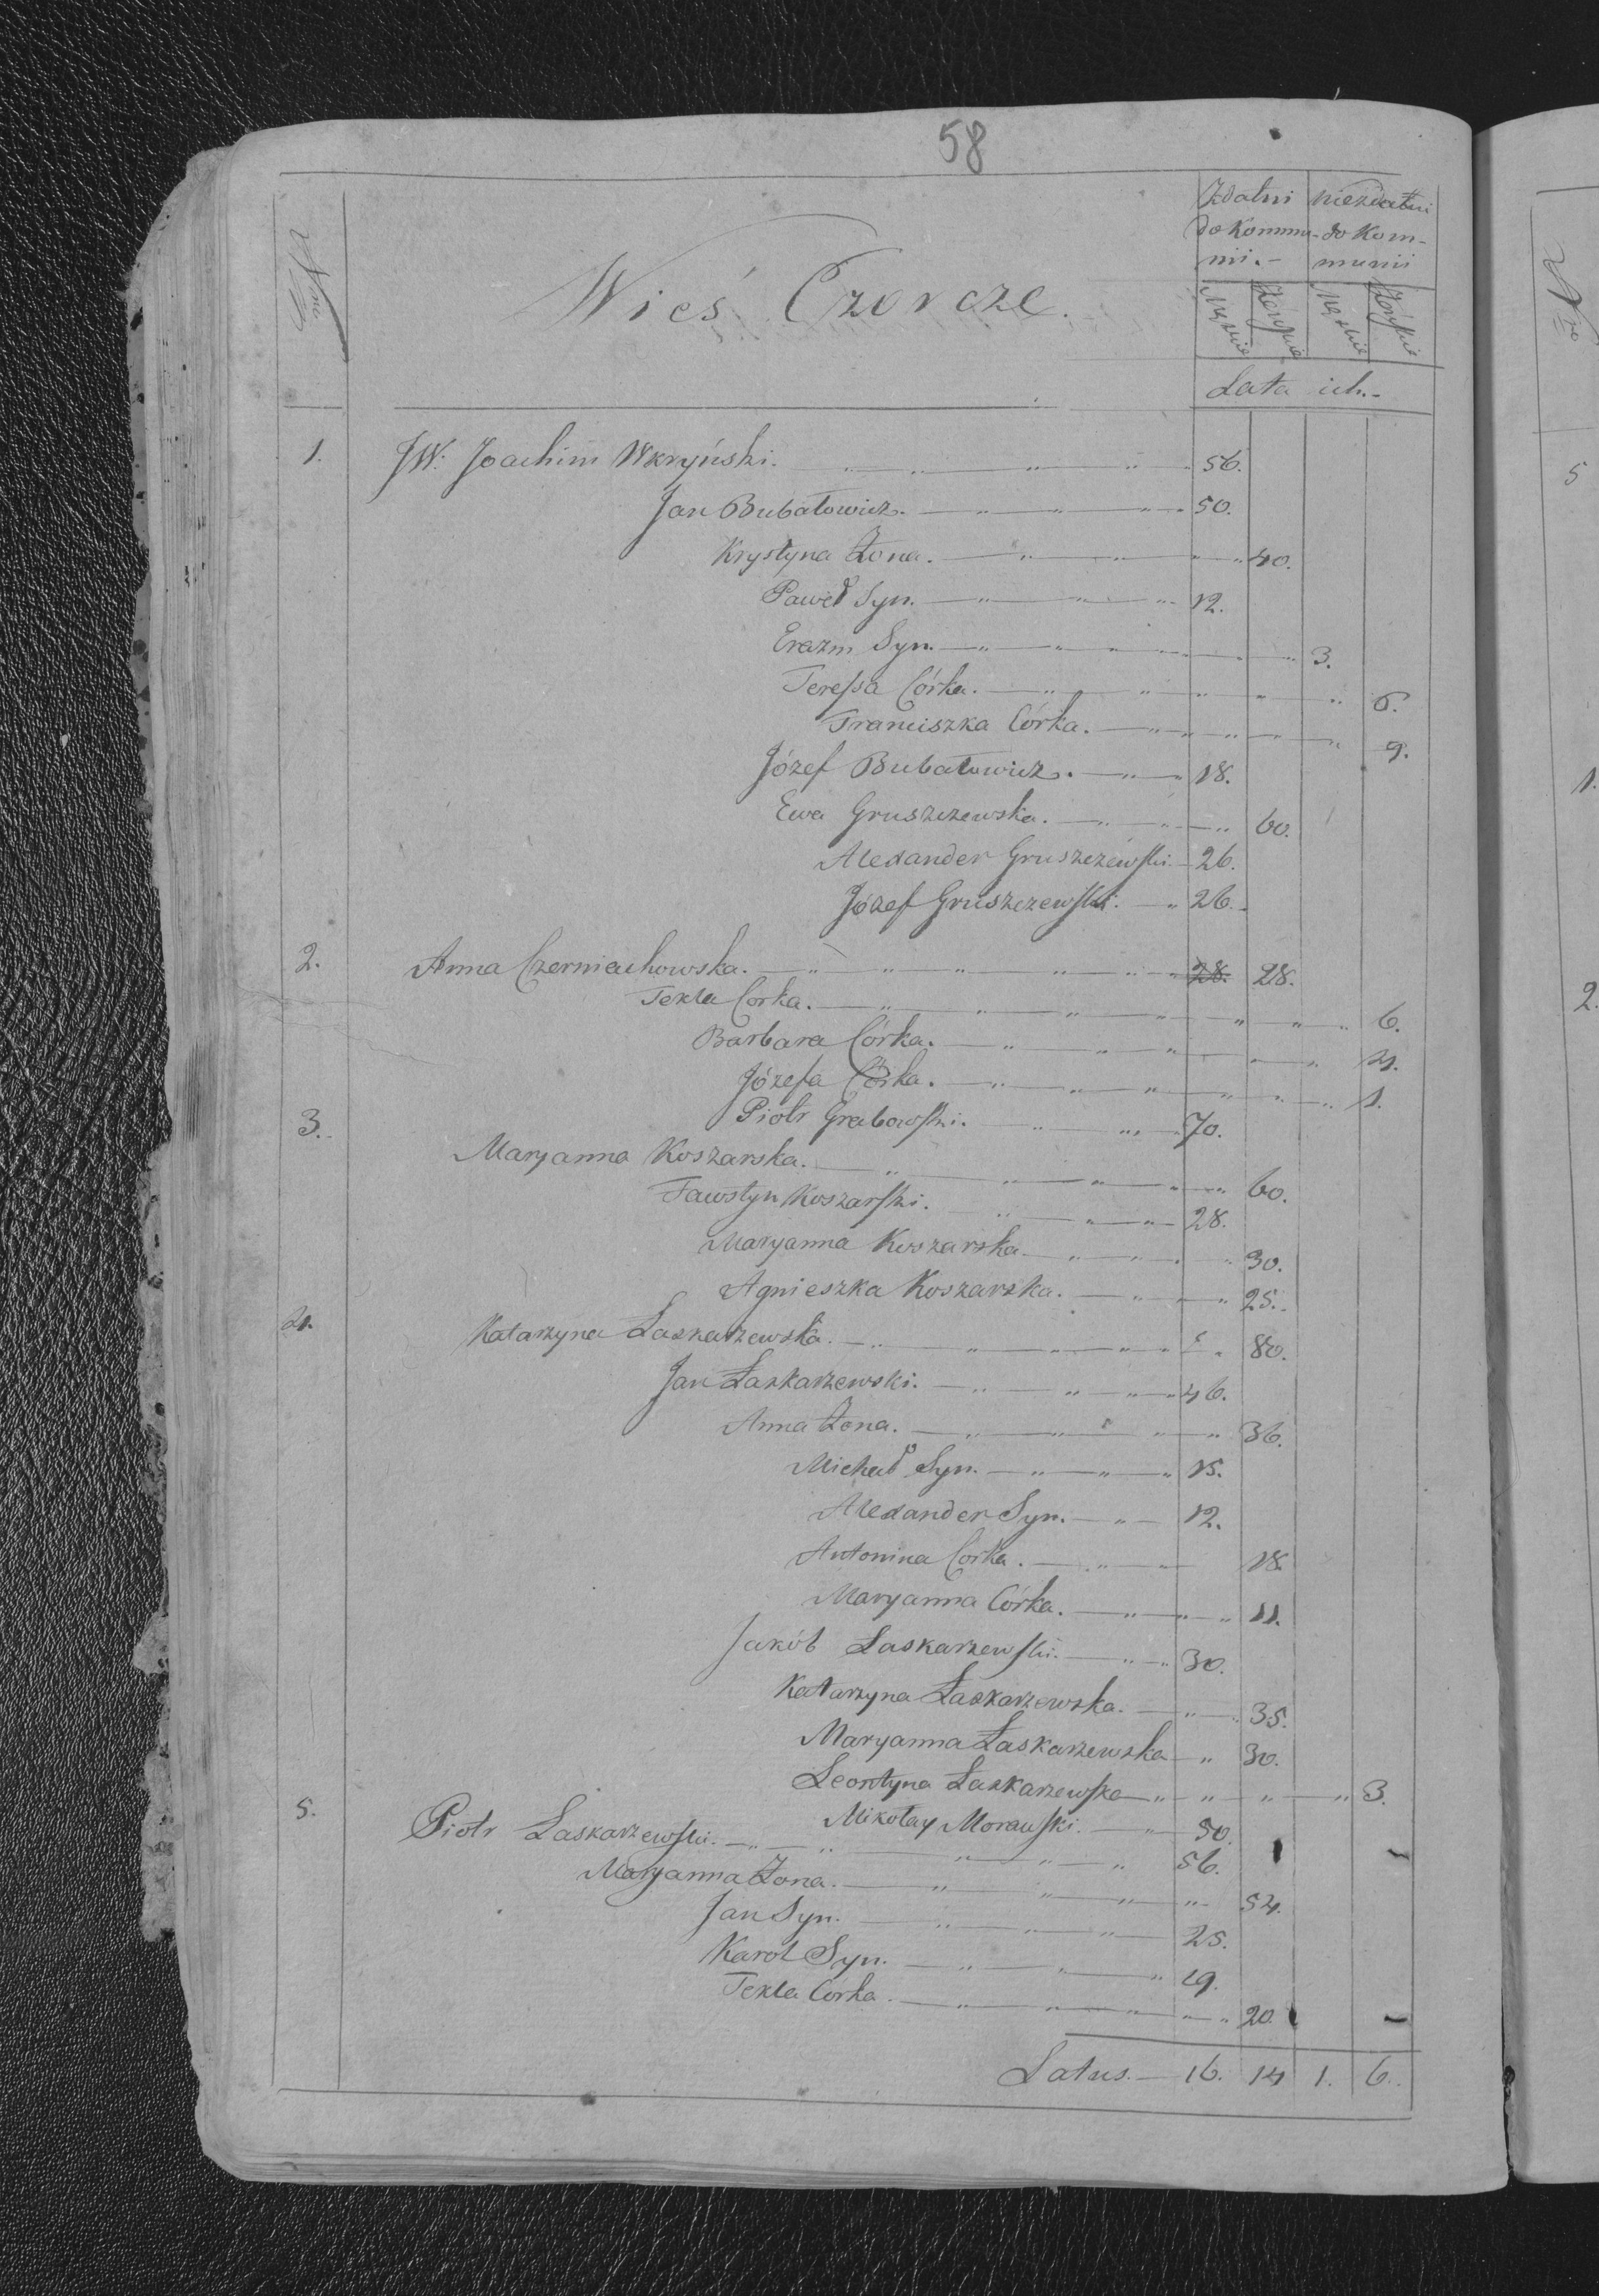 58
Nro
Wieś Czorcze.
Zdatni do Kommunii.- niezdatni do Kommunii
Męzkie Żeńskie Męzkie Żeńskie
Lata ich.-
1. JW. Joachim Wkryński. 56.
Jan Bubałowicz. 50.
Krystyna Żona. 40.
Paweł Syn. 12.
Erazm Syn. 3.
Teressa Córka. 6.
Franciszka Córka. 9.
Józef Bubałowicz. 18.
Ewa Gruszczewska. 60.
Alexander Gruszczewski. 26.
Józef Gruszczewski. 26.
2. Anna Czerniachowska. 28. 28.
Tekla Corka. 6.
Barbara Córka. 4.
Józefa Córka. 1.
Piotr Grabowski. 70.
3. Maryanna Koszarska. 60.
Fawstyn Koszarski. 28.
Maryanna Koszarska. 30.
Agnieszka Koszarska. 25.
4. Katarzyna Łaskarzewska. 80.
Jan Łaskarzewski. 46.
Anna Żona. 36.
Michał Syn. 15.
Alexander Syn. 12.
Antonina Corka. 18.
Maryanna Córka. 11.
Jakób Łaskarzewski. 30.
Katarzyna Łaskarzewska. 35.
Maryanna Łaskarzewska 30.
Leontyna Łaskarzewska 3.
Mikołay Morawski. 50.
5. Piotr Łaskarzewski. 56.
Maryanna Żona. 54.
Jan Syn. 25.
Karol Syn. 19.
Tekla Córka. 20.
Latus. 16. 14 1. 6.
Nro
5
1.
2.